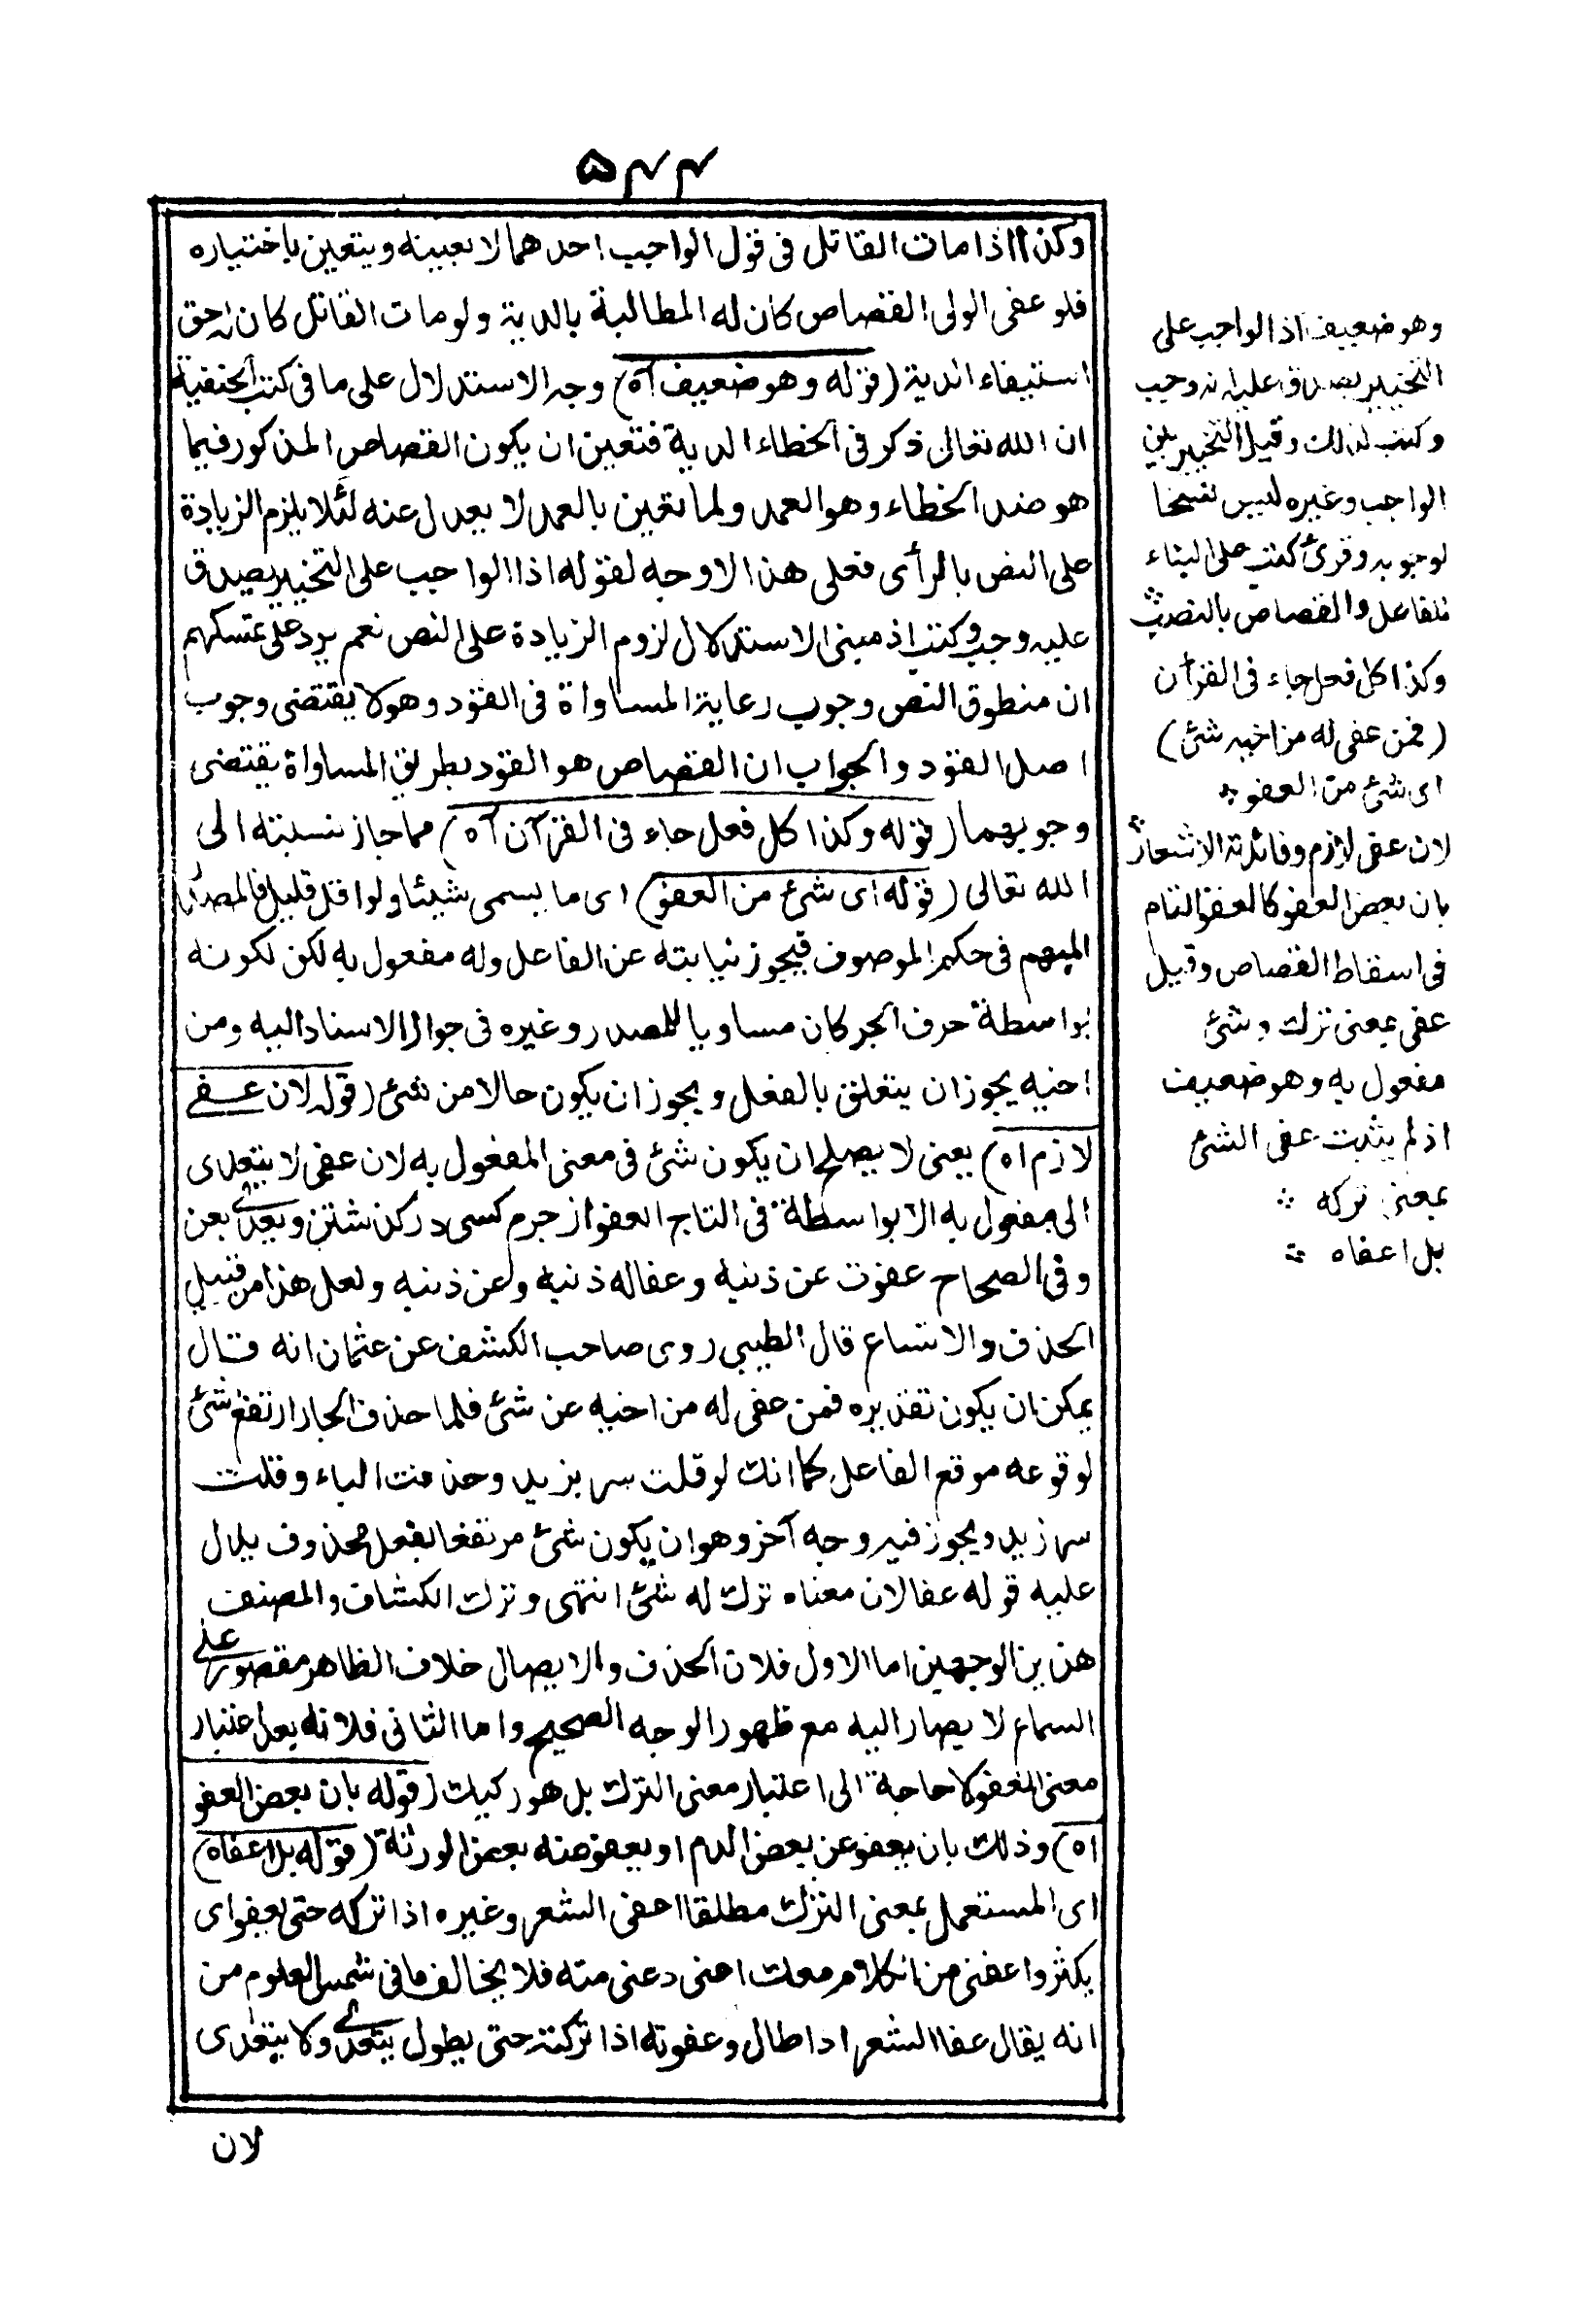 ۵۴۴
وكذا اذا مات القاتل فى قول الواجب احدهما لا بعينه ويتعين باختياره
فلو عفى الولى القصاص كان له المطالبة بالدية ولو مات القاتل كان له حق
استيفاء الدية (قوله وهو ضعيف آه) وجه الاستدلال على ما فى كتب الحنفية
ان الله تعالى ذكر فى الخطاء الدية فتعين ان يكون القصاص المذكور فيما
هو ضد الخطاء وهو العمد ولما تعين بالعمد لا يعدل عنه لئلا يلزم الزيادة
على النص بالرأى فعلى هذا لا وجه لقوله اذا الواجب على التخيير يصدق
عليه وجب وكتب اذ مبنى الاستدلال لزوم الزيادة على النص نعم يرد على تمسكهم
ان منطوق النص وجوب رعاية المساواة فى القود وهو لا يقتضى وجوب
اصل القود والجواب ان القصاص هو القود بطريق المساواة يقتضى
وجوبهما (قوله وكذا كل فعل جاء فى القرآن آه) مما جاز نسبته الى
الله تعالى (قوله اى شئ من العفو) اى ما يسمى شيئا ولو اقل قليل فالمصدر
المبهم فى حكم الموصوف فيجوز نيابته عن الفاعل وله مفعول به لكن لكونه
بواسطة حرف الجر كان مساويا للمصدر وغيره فى جواز الاسناد اليه ومن
اخيه يجوز ان يتعلق بالفعل ويجوز ان يكون حالا من شئ (قوله لان عفى
لازم اه) يعنى لا يصلح ان يكون شئ فى معنى المفعول به لان عفى لا يتعدى
الى مفعول به الا بواسطة فى التاج العفو از جرم كسى در كذشتن ويعدى بعن
وفى الصحاح عفوت عن ذنبه وعفا له ذنبه وعن ذنبه ولعل هذا من قبيل
الحذف والاتساع قال الطيبى روى صاحب الكشف عن عثمان انه قال
يمكن ان يكون تقديره فمن عفى له من اخيه عن شئ فلما حذف الجار ارتفع شئ
لوقوعه موقع الفاعل كما انك لو قلت سر بزيد وحذفت الباء وقلت
سر زيد ويجوز فيه وجه آخر وهو ان يكون شئ مرتفعا بفعل محذوف يدل
عليه قوله عفا لان معناه ترك له شئ انتهى وترك الكشاف والمصنف
هذين الوجهين اما الاول فلان الحذف والايصال خلاف الظاهر مقصور على
السماع لا يصار اليه مع ظهور الوجه الصحيح واما الثانى فلانه بعد اعتبار
معنى العفو لا حاجة الى اعتبار معنى الترك بل هو ركيك (قوله بان بعض العفو
اه) وذلك بان يعفو عن بعض الدم او يعفو عنه بعض الورثة (قوله بل اعفاه)
اى المستعمل بمعنى الترك مطلقا اعفى الشعر وغيره اذا تركه حتى يعفو اى
يكثر واعفنى من الكلام معك اى دعنى منه فلا يخالف ما فى شمس العلوم من
انه يقال عفا الشعر اذا طال وعفوته اذا تركته حتى يطول يتعدى ولا يتعدى
لان
وهو ضعيف اذ الواجب على
التخيير يصدق عليه انه وجب
وكتب لذلك وقيل التخيير بين
الواجب وغيره ليس نسخا
لوجوبه وقرئ كتب على البناء
للفاعل والقصاص بالنصب
وكذا كل فعل جاء فى القرآن
(فمن عفى له من اخيه شئ)
اى شئ من العفو
لان عفى لازم وفائدته الاشعار
بان بعض العفو كالعفو التام
فى اسقاط القصاص وقيل
عفى بمعنى ترك وشئ
مفعول به وهو ضعيف
اذ لم يثبت عفى الشئ
بمعنى تركه
بل اعفاه